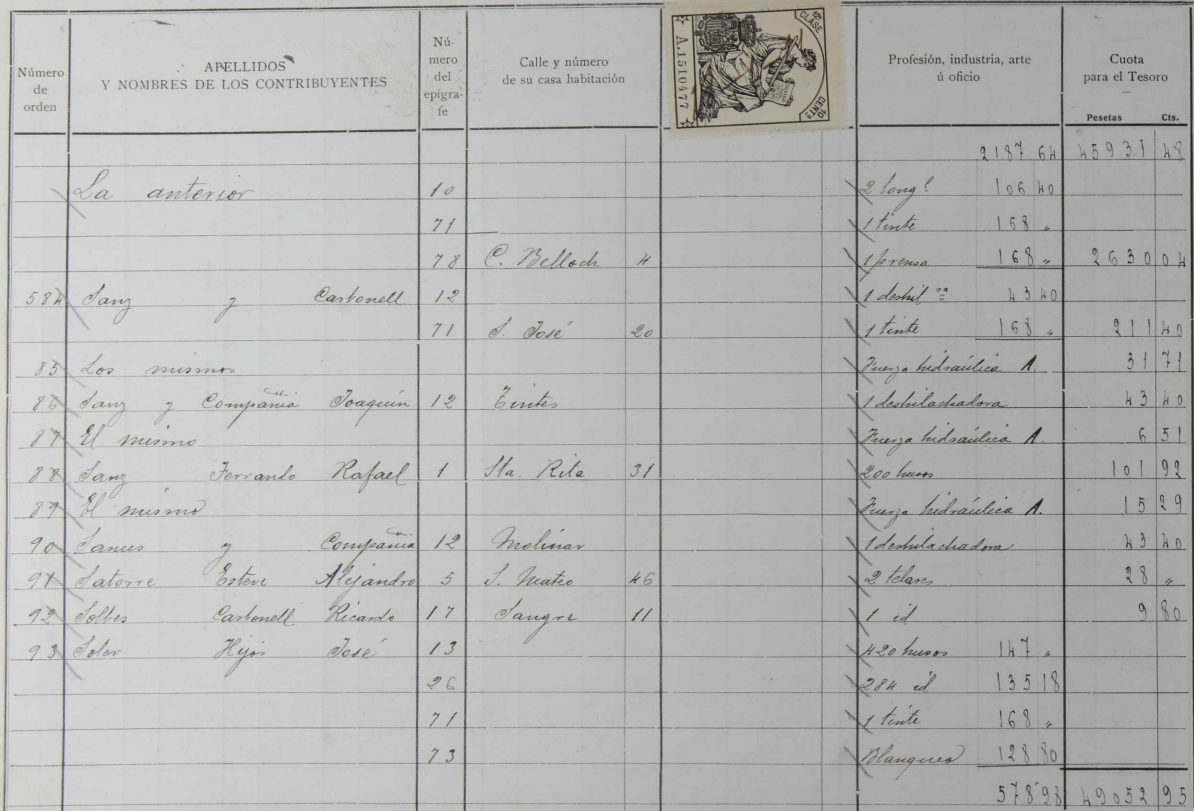 Número de orden
APELLIDOS Y NOMBRES DE LOS CONTRIBUYENTES
Nú- mero del epígra- fe
Calle y número de su casa habitación
12ª CLASE
A.1.510.477
10 CENTS
Profesión, industria, arte ú oficio
Cuota para el Tesoro
Pesetas Cts.
2187 64 45931 48
La anterior 10 2 longs 106 40
71 1 tinte 168 "
78 C. Belloch 4 1 prensa 168 " 2630 04
584 Sanz y Carbonell 12 1 deshilra 43 40
71 S. José 20 1 tinte 168 " 211 40
85 Los mismos Fuerza hidraúlica A. 31 71
86 Sanz y Compañia Joaquín 12 Tintes 1 deshilachadora 43 40
87 El mismo Fuerza hidraúlica A. 6 51
88 Sanz Ferrando Rafael 1 Sta. Rita 31 200 husos 101 92
89 El mismo Fuerza hidraúlica A. 15 29
90 Sanus y Compañia 12 Molinar 1 deshilachadora 43 40
91 Satorre Esteve Alejandro 5 S. Mateo 46 2 telares 28 "
92 Solbes Carbonell Ricardo 17 Sangre 11 1 id 9 80
93 Soler Hijos José 13 420 husos 147 "
26 284 id 135 18
71 1 tinte 168 "
73 Blanqueo 128 80
578'98 49052 95